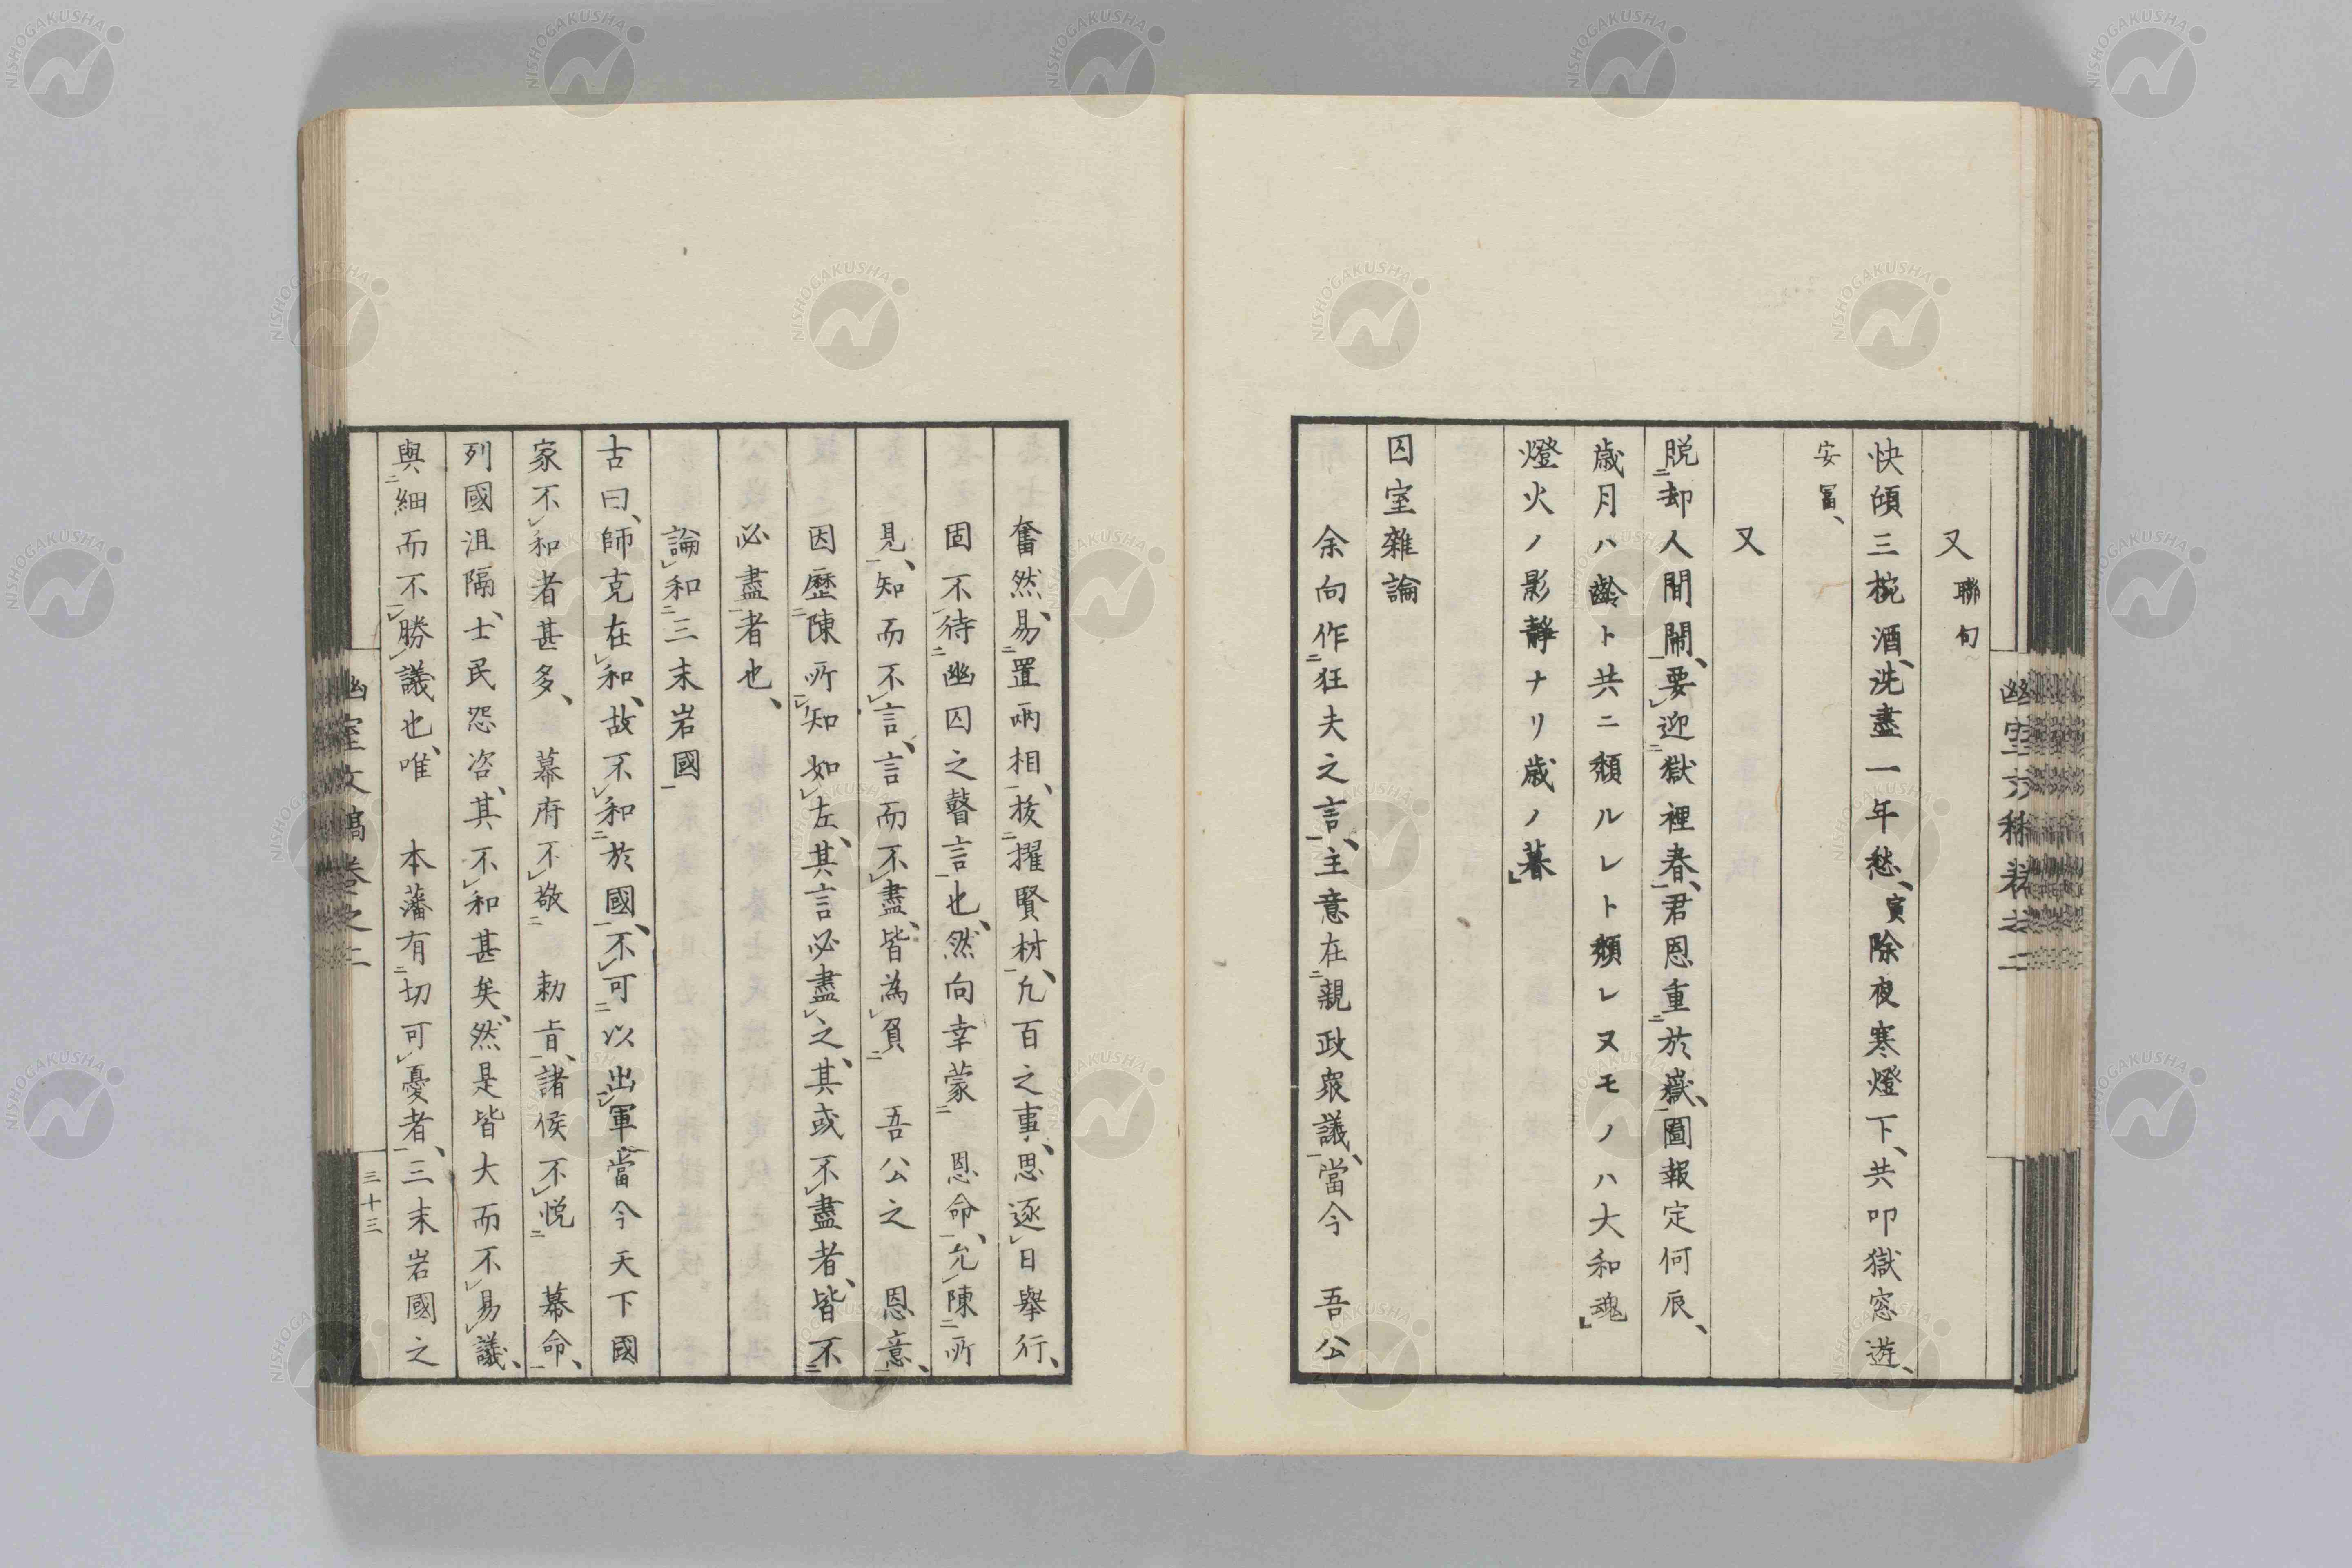 又 聯句
快傾三椀酒、洗盡一年愁、寅除夜寒燈下、共叩獄窓遊、
安冨、
又
脱却人間鬧、要迎獄裡春、君恩重於嶽、圖報定何辰、
歳月ハ齢ト共ニ頽ルレト頽レヌモノハ大和魂」
燈火ノ影靜ナリ歳ノ暮」
囚室雜論
余向作狂夫之言、主意在親政衆議、當今 吾公
奮然、易置兩相、拔擢賢材、凢百之事、思逐日舉行、
固不待幽囚之瞽言也、然向幸蒙 恩命、允陳所
見、知而不言、言而不盡、皆為負 吾公之 恩意、
因歷陳所知如左、其言必盡之、其或不盡者、皆不
必盡者也、
論和三末岩國
古曰、師克在和、故不和於國、不可以出軍、當今天下國
家不和者甚多、 幕府不敬 勅旨、諸侯不悦 幕命、
列國沮隔、士民怨咨、其不和甚矣、然是皆大而不易議、
與細而不勝議也、唯 本藩有切可憂者、三末岩國之
幽室文稿卷之二
三十三